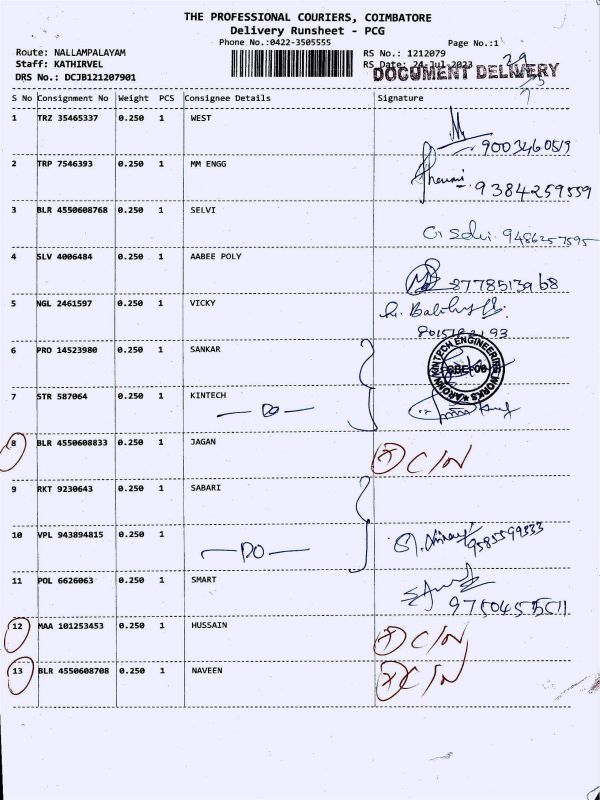 THE PROFESSIONAL COURIERS, COIMBATORE
Delivery Runsheet - PCG
Phone No.:0422-3505555
Page No.:1
Route: NALLAMPALAYAM
RS No.: 1212079
Staff: KATHIRVEL
RS Date: 24-Jul-2023
DRS No.: DCJB121207901
DOCUMENT DELIVERY
S No Consignment No Weight PCS Consignee Details Signature
1 TRZ 35465337 0.250 1 WEST
9003460519
2 TRP 7546393 0.250 1 MM ENGG
9384259559
3 BLR 4550608768 0.250 1 SELVI
G. Selvi. 9486257595
4 SLV 4006484 0.250 1 AABEE POLY
8778513968
5 NGL 2461597 0.250 1 VICKY
6 PRO 14523980 0.250 1 SANKAR
KINTECH ENGINEERING WORKS
7 STR 587064 0.250 1 KINTECH
— DO —
8 BLR 4550608833 0.250 1 JAGAN
C/N
9 RKT 9230643 0.250 1 SABARI
10 VPL 943894815 0.250 1
— DO —
9585599333
11 POL 6626063 0.250 1 SMART
12 MAA 101253453 0.250 1 HUSSAIN
C/N
13 BLR 4550608708 0.250 1 NAVEEN
C/N